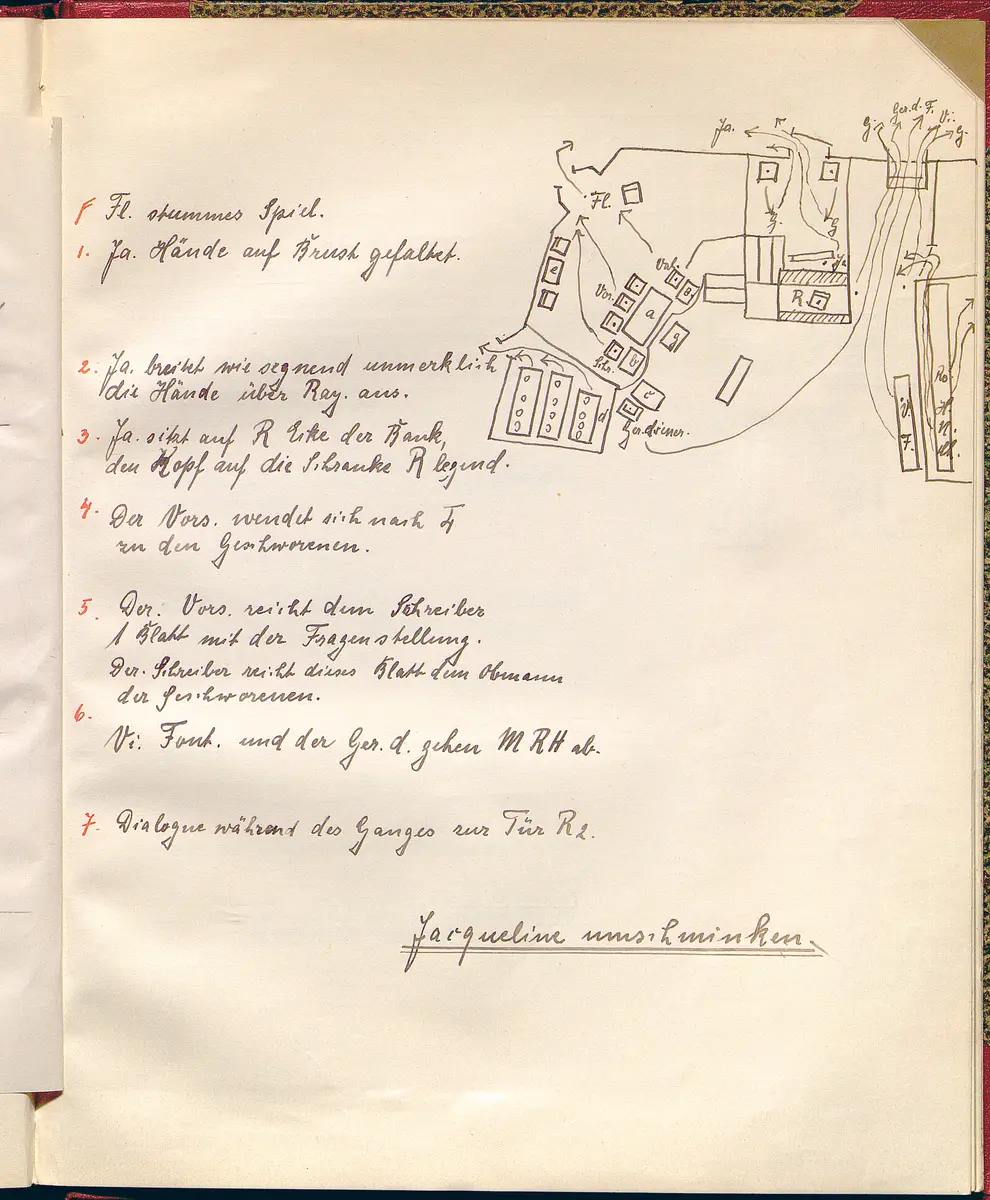 Fl. stummes Spiel.
1. Ja. Hände auf Brust gefaltet.
2. Ja. breitet wie segnend unmerklich
die Hände über Ray. aus.
3. Ja. sitzt auf R Ecke der Bank,
den Kopf auf die Schranke R legend.
4. Der Vors. wendet sich nach
zu den Geschworenen.
5. Der. Vors. reicht dem Schreiber
1 Blatt mit der Fragenstellung.
Der Schreiber reicht dieses Blatt dem Obmann
der Geschworenen.
6.
Vi. Font. und der Ger. d. gehen M R H ab.
7. Dialogue während des Ganges zur Tür R 2.
Jacqueline umschminken.
Ja.
G.
Ger. d. F.
Vi.
G.
Fl.
G.
G.
Ja
e
Vors.
8
a
R
g
Schr.
b
c
d
Ger. diener.
V.
F.